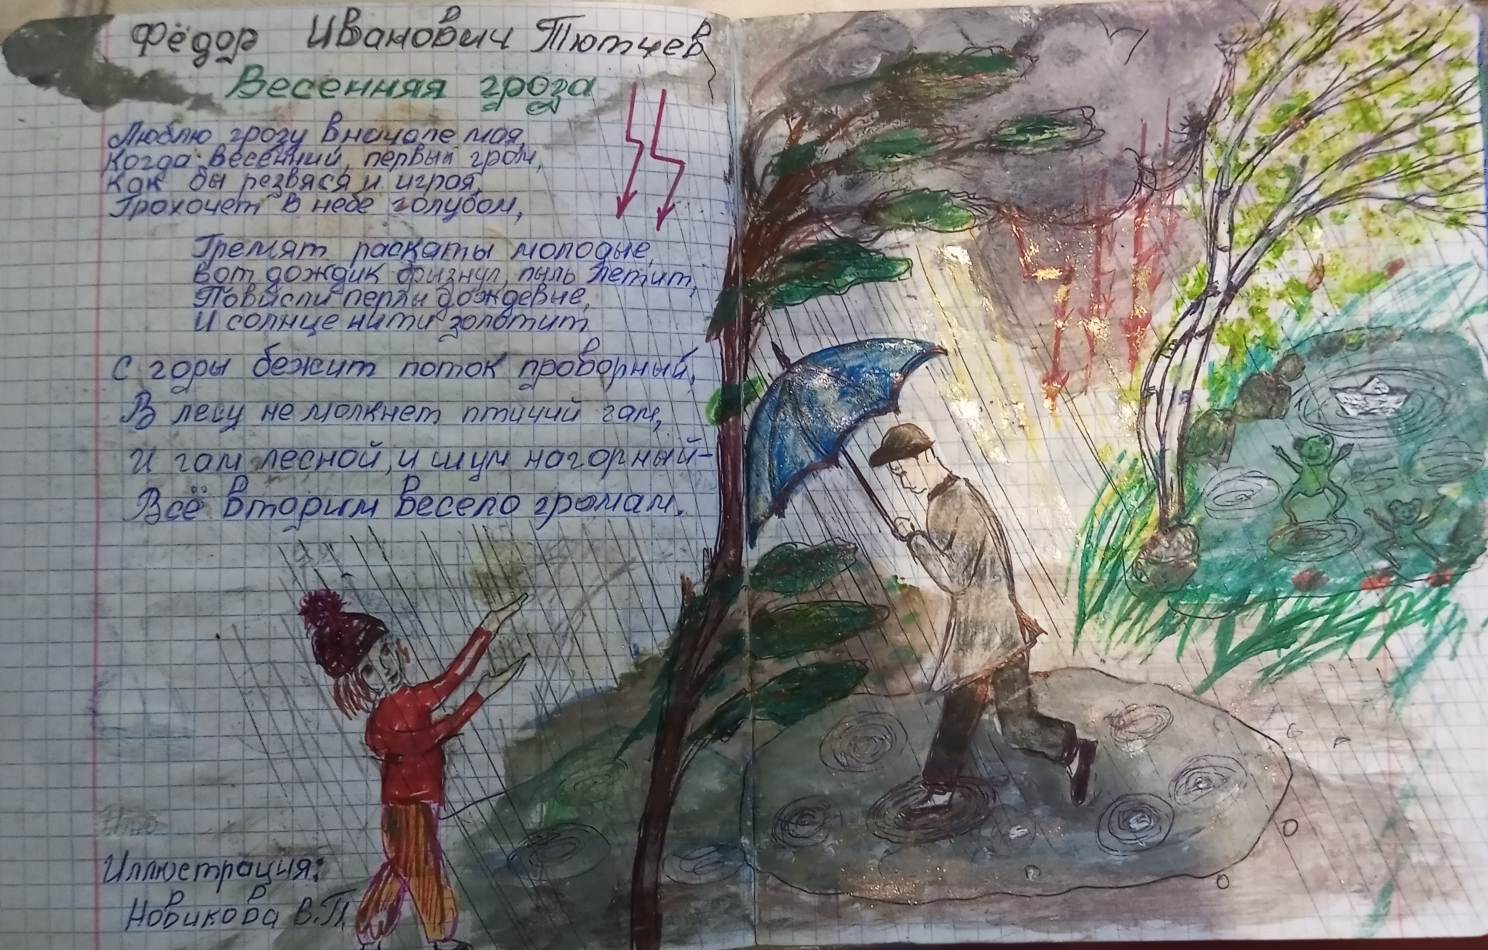 Фёдор Иванович Тютчев
Весенняя гроза
Люблю грозу в начале мая,
Когда весенний, первый гром,
Как бы резвяся и играя,
Грохочет в небе голубом,
Гремят раскаты молодые,
Вот дождик брызнул, пыль летит,
Повисли перлы дождевые,
И солнце нити золотит
С горы бежит поток проворный,
В лесу не молкнет птичий гам,
И гам лесной, и шум нагорный-
Всё вторит весело громам.
Иллюстрация:
Новикова В.П.